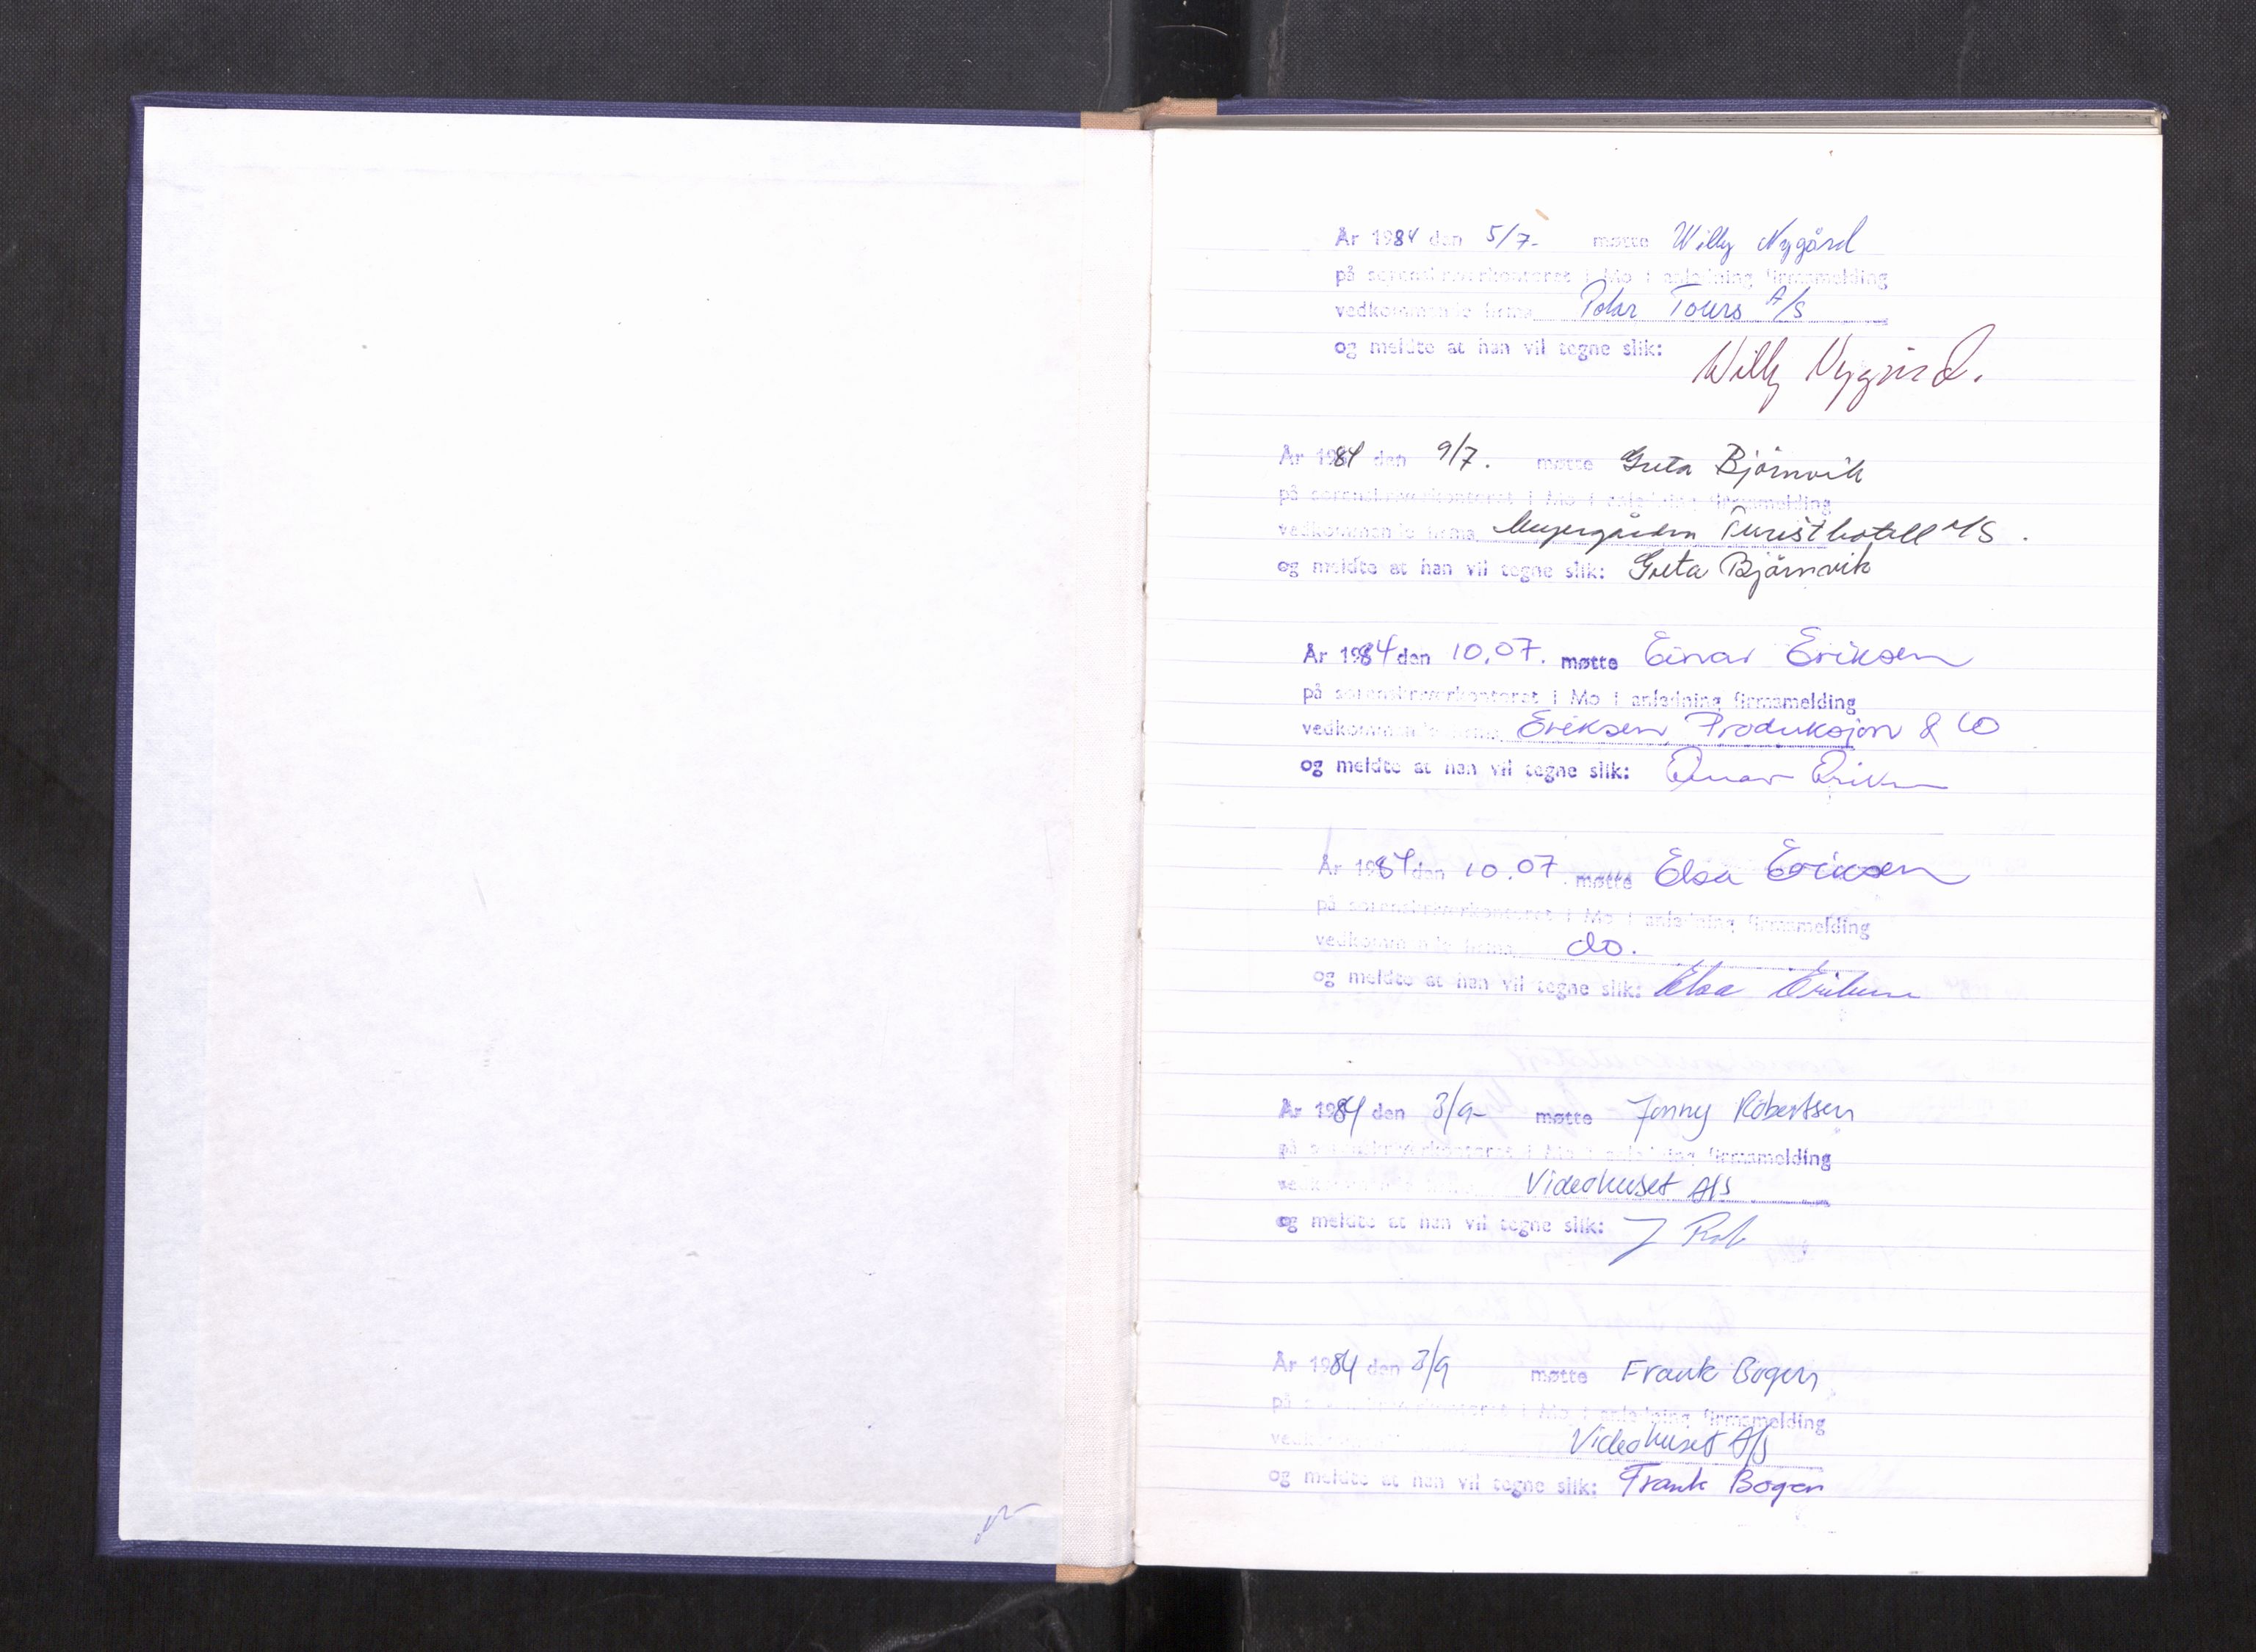 År 1984 den 5/7- møtte Willy Nygård
på sorenskriverkontoret i Mo i anledning firmamelding
vedkommende firma Polar Tours A/S
og meldte at han vil tegne slik: Willy Nygård.
År 1984 den 9/7. møtte Greta Bjørnvik
på sorenskriverkontoret i Mo i anledning firmamelding
vedkommende firma Meyergården Turisthotell A/S.
og meldte at han vil tegne slik: Greta Bjørnvik
År 1984 den 10.07. møtte Einar Eriksen
på sorenskriverkontoret i Mo i anledning firmamelding
vedkommende firma Eriksen Produksjon & Co
og meldte at han vil tegne slik: Einar Eriksen
År 1984 den 10.07 møtte Elsa Eriksen
på sorenskriverkontoret i Mo i anledning firmamelding
vedkommende firma do.
og meldte at han vil tegne slik: Elsa Eriksen
År 1984 den 3/9- møtte Jonny Robertsen
på sorenskriverkontoret i Mo i anledning firmamelding
vedkommende firma Videohuset A/S
og meldte at han vil tegne slik: J Rob
År 1984 den 3/9 møtte Frank Bogen
på sorenskriverkontoret i Mo i anledning firmamelding
vedkommende firma Videohuset A/S
og meldte at han vil tegne slik: Frank Bogen